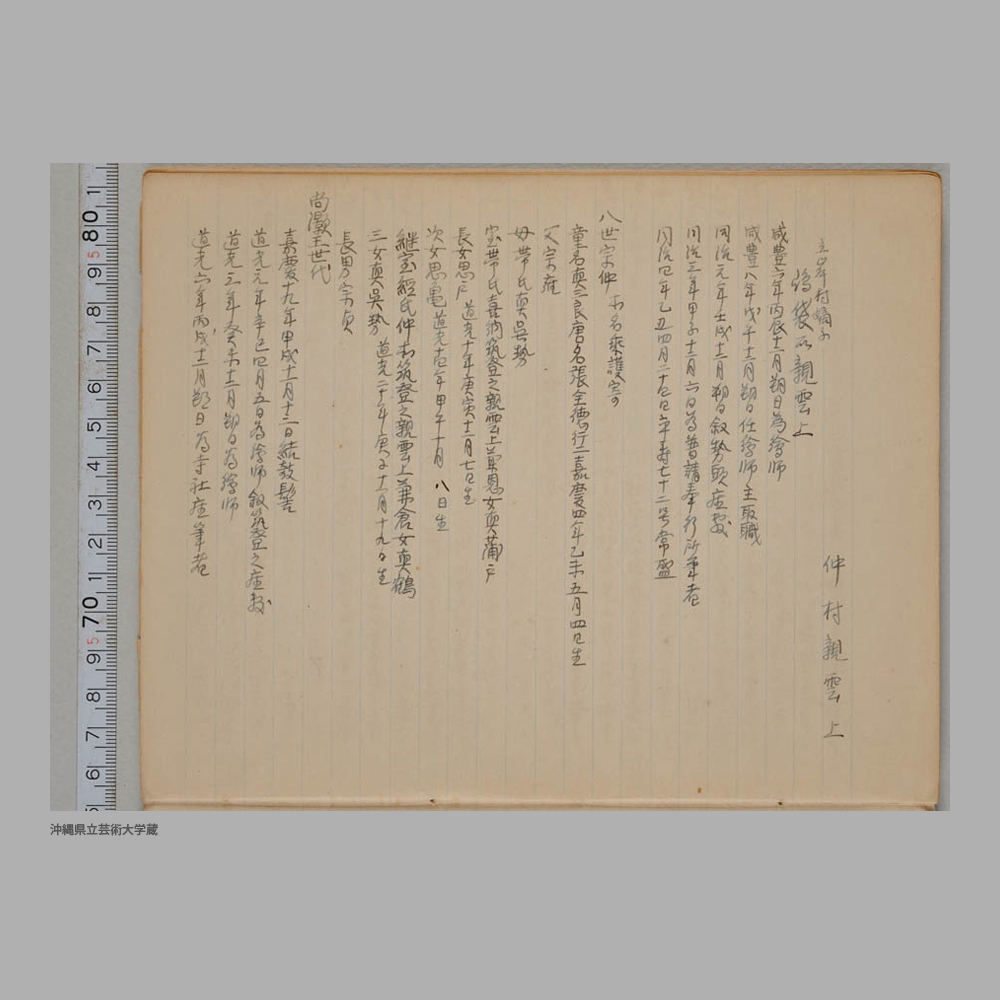 仲村親雲上
咸豊六年丙辰十二月朔日為絵師
咸豊八年戊午十二月朔日任絵師主取職
同治元年壬戌十二月朔日叙勢頭座敷
同治三年甲子十二月六日為普請奉行所筆者
同治四年乙丑四月二十七日卒寿七十二号常盛
八世宗仲
童名真三良唐名張全徳行一嘉慶四年乙未五月四日生
父宗雍
母帯氏真呉勢
室帯氏喜納筑登之親雲上女真蒲戸
長女思戸 道光十年庚寅十二月七日生
次女思亀 道光十四年甲午十月八日生
継室経氏仲本筑登之親雲上兼倉女真鶴
三女真呉勢 道光二十年庚子十二月十九日生
長男宗貞
尚灝王世代
嘉慶十九年甲戌十二月十二日結敧髻
道光元年辛巳四月五日為絵師叙筑登之座敷
道光三年癸未十二月朔日為絵師
道光六年丙戌十二月朔日為寺社座筆者
沖縄県立芸術大学蔵